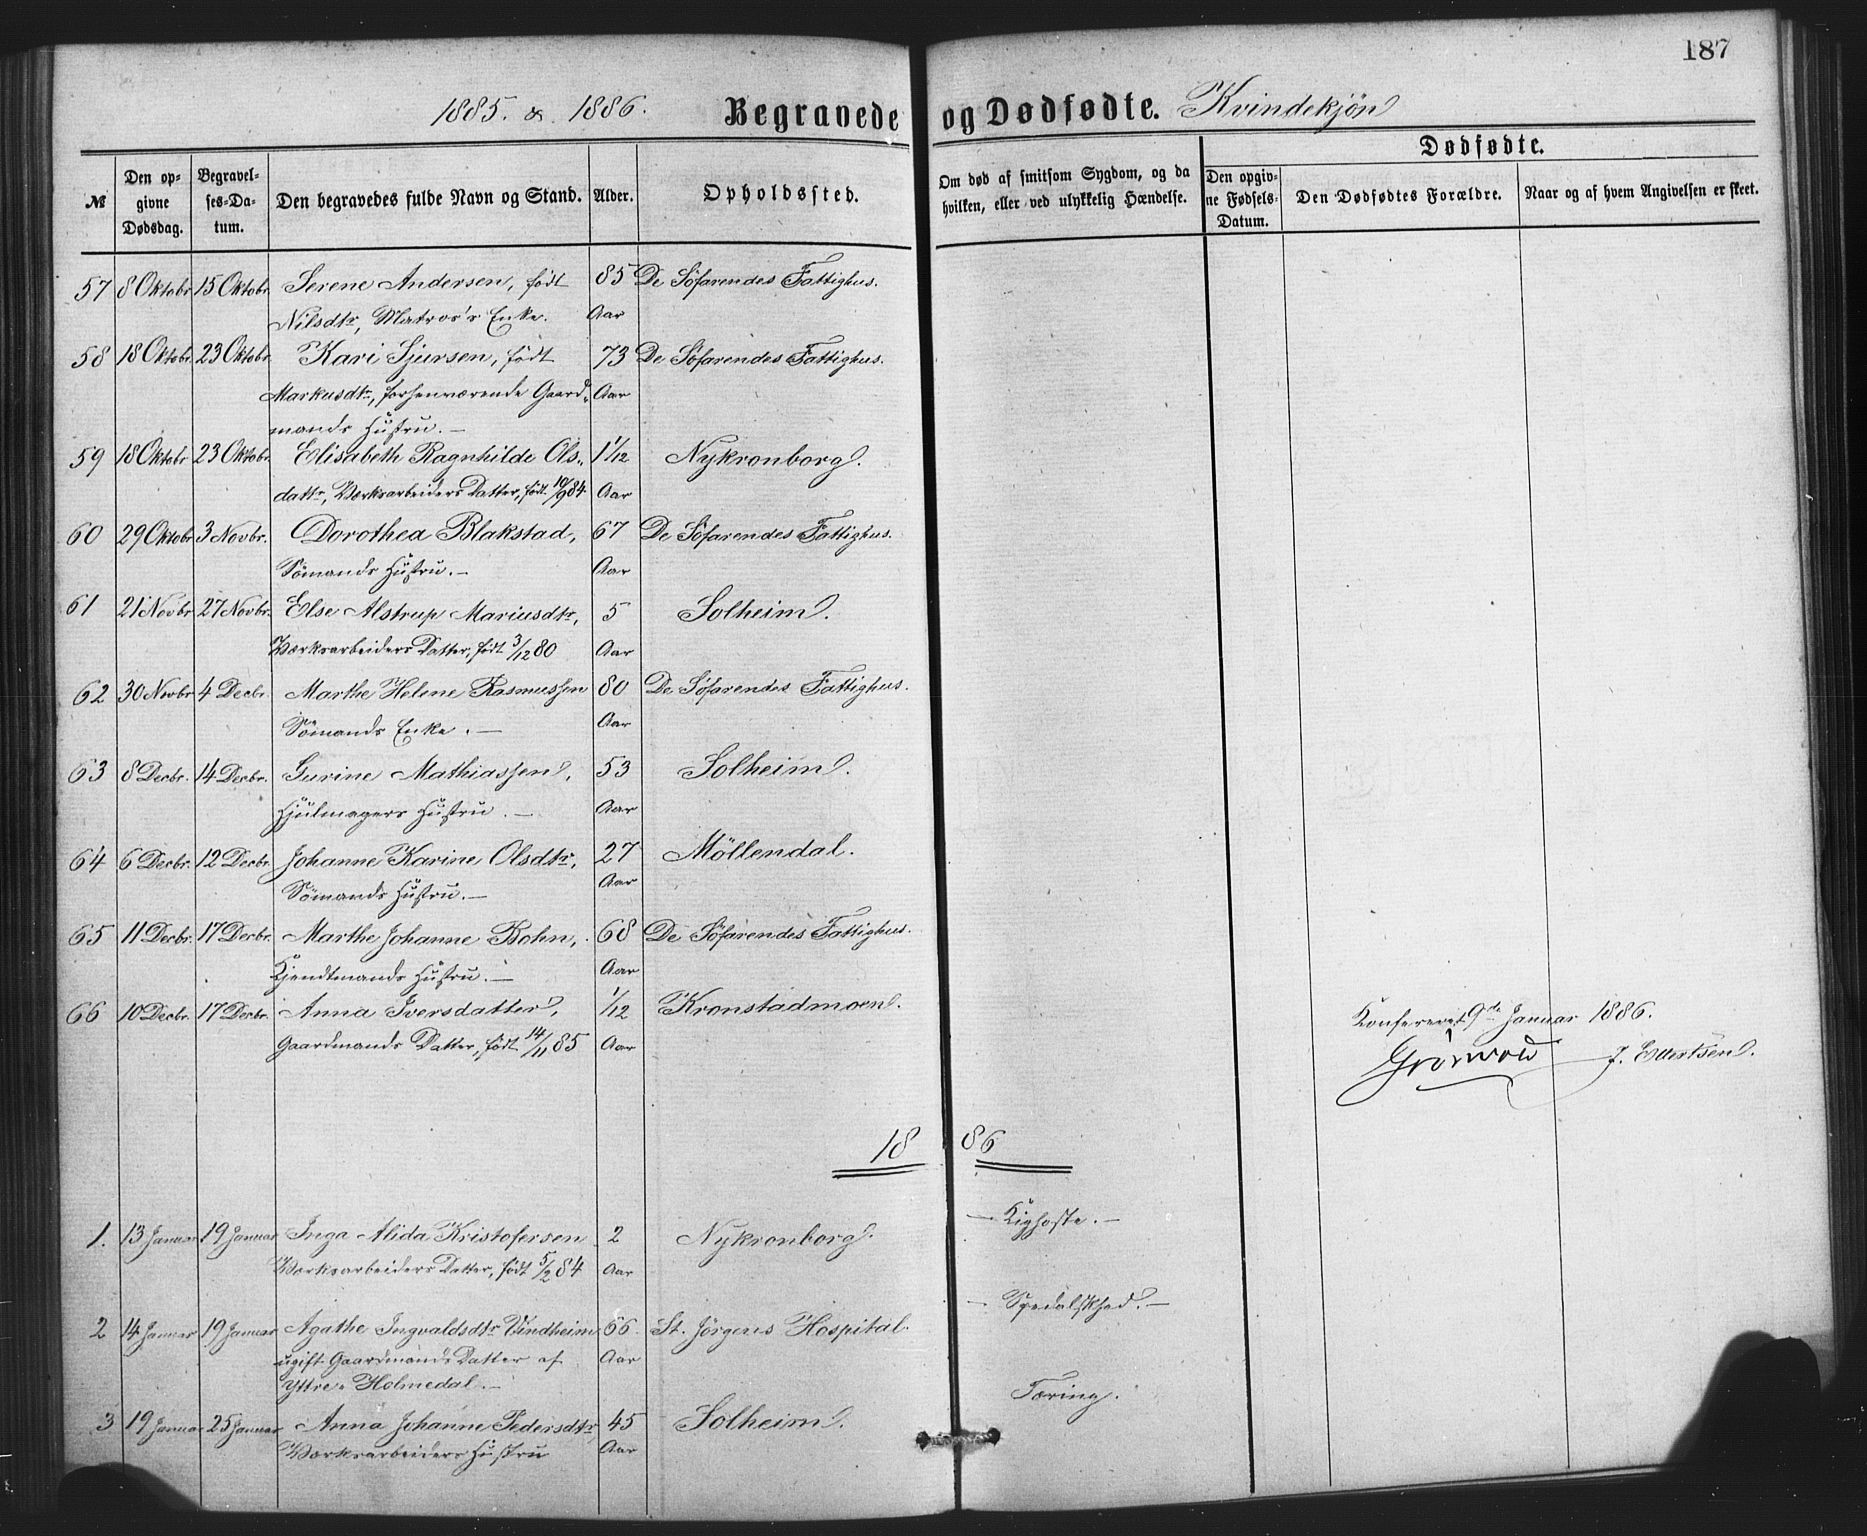 187
1885. & 1886. Begravede og Dødfødte. Kvindekjön
№
Den opgivne Dødsdag.
Begravelses-Datum.
Den begravedes fulde Navn og Stand.
Alder.
Opholdssted.
Om død af smitsom Sygdom, og da hvilken, eller ved ulykkelig Hændelse.
Dødfødte.
Den opgivne Fødsels-Datum.
Den Dødfødtes Forældre.
Naar og af hvem Angivelsen er skeet.
57 8 Oktobr 15 Oktobr. Serene Andersen, født 85 De Söfarendes Fattighus.
Nilsdtr, Matros's Enke. Aar
58 18 Oktobr. 23 Oktobr. Kari Sjursen, født 73 De Söfarendes Fattighus.
Markusdtr, forhenværende Gaard„ Aar
mands Hustru. —
59 18 Oktobr 23 Oktobr. Elisabeth Ragnhilde Ols„ 1 1/12 Nykronborg.
dattr, Værksarbeiders Datter, født 10/9 84. Aar
60 29 Oktobr 3 Novbr. Dorothea Blakstad, 67 De Söfarendes Fattighus.
Sömands Hustru. — Aar
61 21 Novbr 27 Novbr. Else Alstrup Mariusdtr, 5 Solheim.
Værksarbeiders Datter, født 3/12 80 Aar
62 30 Novbr 4 Decbr. Marthe Helene Rasmussen 80 De Söfarendes Fattighus.
Sömands Enke. — Aar
63 8 Decbr. 14 Decbr. Gurine Mathiassen, 53 Solheim.
Hjulmagers Hustru. — Aar
64 6 Decbr. 12 Decbr. Johanne Karine Olsdtr, 27 Möllendal.
Sömands Hustru. — Aar
65 11 Decbr. 17 Decbr. Marthe Johanne Bohn, 68 De Söfarendes Fattighus.
Kjendtmands Hustru. — Aar
66 10 Decbr. 17 Decbr. Anna Iversdatter, 1/12 Kronstadmoen.
Gaardmands Datter, født 14/11 85 Aar
Konfereret 9de Januar 1886.
Grönvold J. Ellertsen.
1886
1. 13 Januar 19 Januar Inga Alida Kristofersen 2 Nykronborg. — Kighoste. —
Værksarbeiders Datter, født 5/2 84 Aar
2 14 Januar 19 Januar Agathe Ingvaldsdtr Vindheim 66 St. Jörgens Hospital. — Spedalskhed. —
ugift Gaardmands Datter af Aar
Yttre„ Holmedal. —
3 19 Januar 25 Januar Anna Johanne Pedersdtr, 45 Solheim. Tæring.
Værksarbeiders Hustru Aar